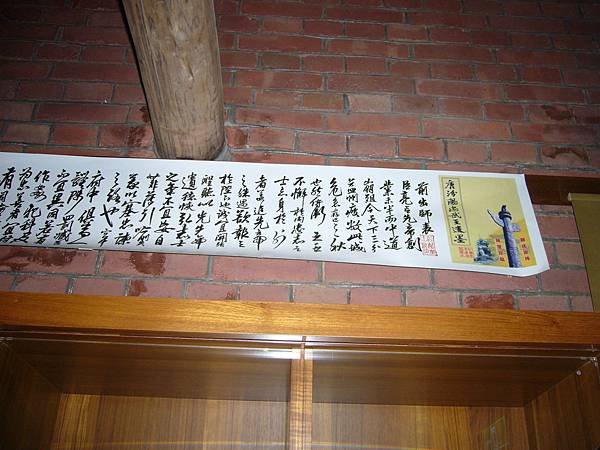 唐汾陽忠武王遺墨
前出師表
臣亮言先帝創
業未半而中道
崩殂今天下三分
益州疲敝此誠
危急存亡之秋
也然侍衛之臣
不懈於內忠志之
士忘身於外
者蓋追先帝
之殊遇欲報之
於陛下也誠宜開
聖聽以光先帝
遺德恢弘志士
之氣不宜妄自
菲薄引喻
失義以塞忠諫
之路也宮中
府中俱為一
體陟罰臧
否不宜異同若有
作姦犯科